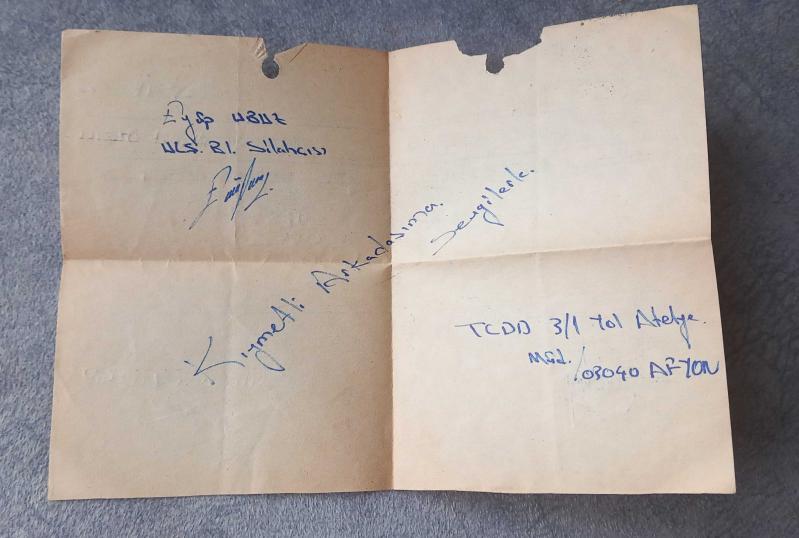 Eyüp
Bl. Silahcısı
Kıymetli Arkadaşıma.
Sevgilerle.
TCDD 3/1 Yol Atelye.
Müd. /03040 AFYON